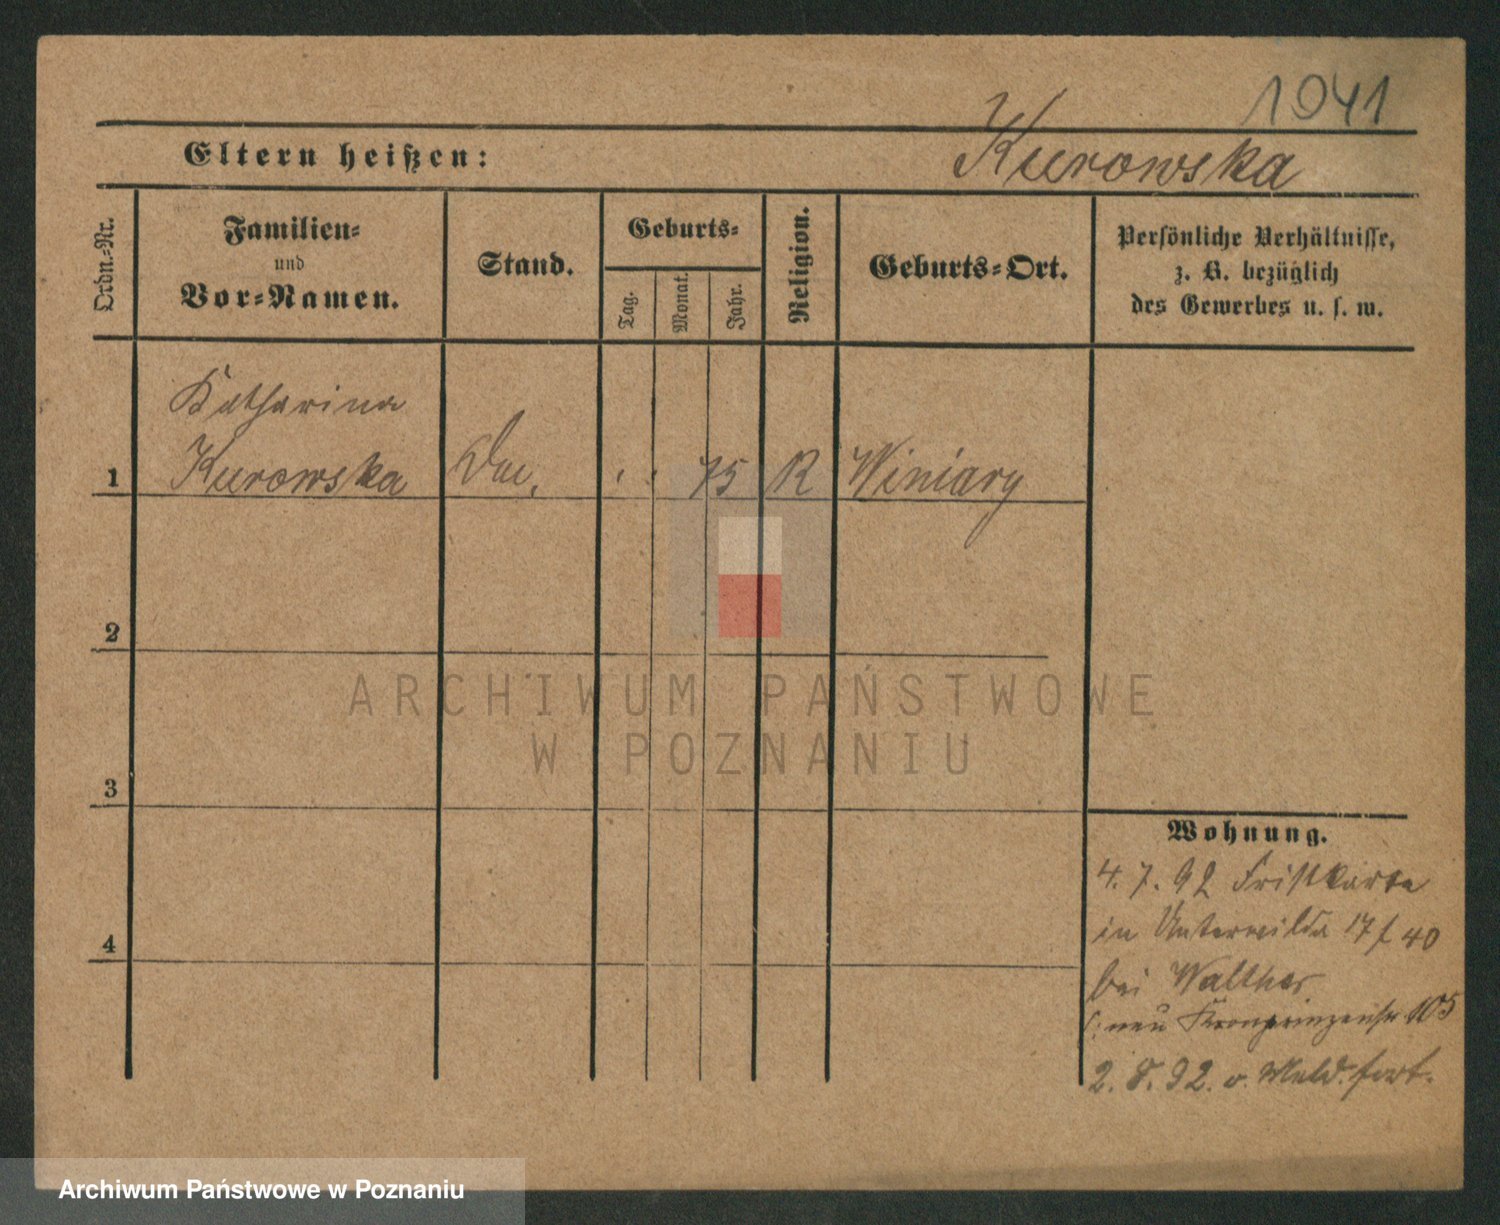 1941
Eltern heißen:
Kurowska
Ordn.-Nr.
Familien-
und
Vor-Namen.
Stand.
Geburts-
Tag.
Monat.
Jahr.
Religion.
Geburts-Ort.
Persönliche Verhältnisse,
z. B. bezüglich
des Gewerbes u. s. w.
Katharina
1 Kurowska 75 R Winiary
2
3
4
Wohnung.
4. 7. 92 Fristkarte
in Unterwilda 17 f 40
bei Walther
neu Kronprinzenstr 105
2. 8. 92. o. Meld. fort.
ARCHIWUM PAŃSTWOWE
W POZNANIU
Archiwum Państwowe w Poznaniu